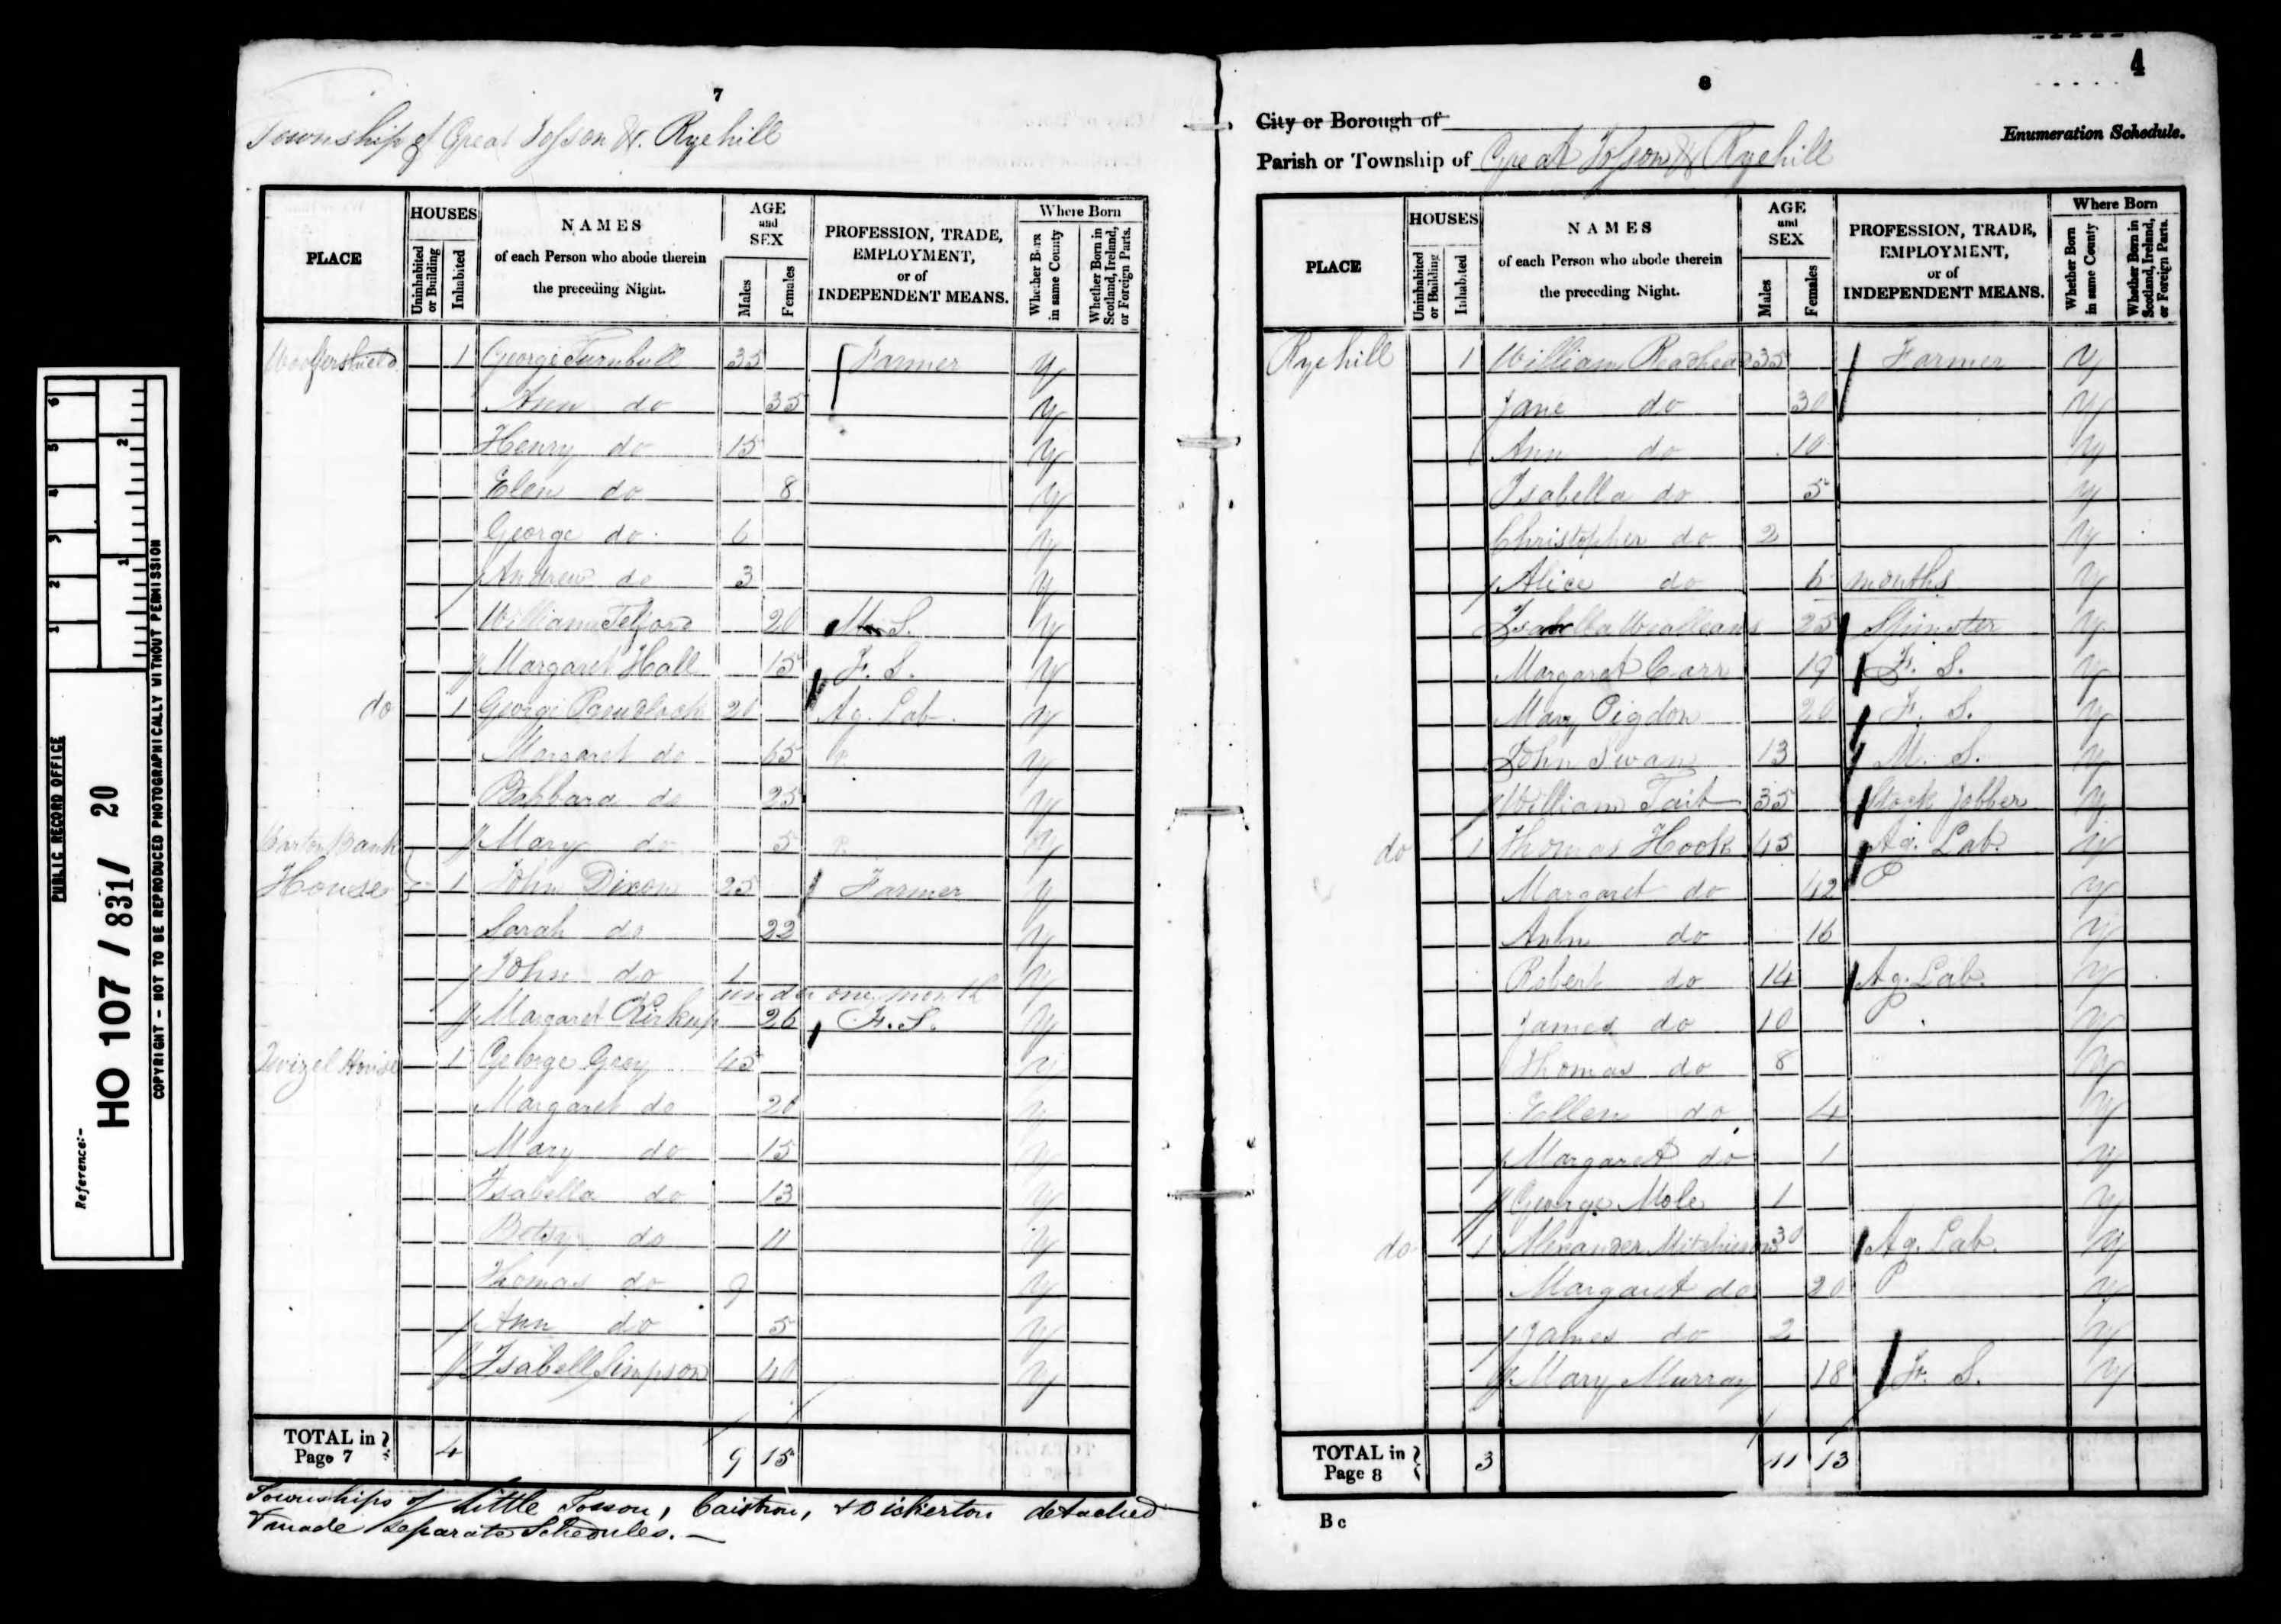 PUBLIC RECORD OFFICE
Reference:-
HO 107 / 831/ 20
COPYRIGHT - NOT TO BE REPRODUCED PHOTOGRAPHICALLY WITHOUT PERMISSION
1 2 3 4 5 6
1 2
7
Township of Great Tosson & Ryehill
PLACE
HOUSES
Uninhabited or Building
Inhabited
NAMES
of each Person who abode therein
the preceding Night.
AGE
and
SEX
Males
Females
PROFESSION, TRADE,
EMPLOYMENT,
or of
INDEPENDENT MEANS.
Where Born
Whether Born in same County
Whether Born in Scotland, Ireland, or Foreign Parts.
1 George Turnbull 35 Farmer y
Ann do 35 y
Henry do 15 y
Elen do 8 y
George do 6 y
Andrew do 3 y
William Telford 20 M. S. y
Margaret Hall 15 F. S. y
do 1 George 20 Ag. Lab. y
Margaret do 65 y
Barbara do 25 y
Mary do 5 y
Bank
House 1 John Dixon 25 Farmer y
Sarah do 22 y
John do 1 y
under one month
Margaret Kirkup 26 F. S. y
Twizel House 1 George Grey 45 y
Margaret do 20 y
Mary do 15 y
Isabella do 13 y
Betsy do 11 y
Thomas do 9 y
Ann do 5 y
Isabell Simpson 40 y
TOTAL in
Page 7 4 9 15
Townships of Little Tosson, Caistron, & Bickerton detached
& made separate Schedules.
4
8
City or Borough of
Enumeration Schedule.
Parish or Township of Great Tosson & Ryehill
PLACE
HOUSES
Uninhabited or Building
Inhabited
NAMES
of each Person who abode therein
the preceding Night.
AGE
and
SEX
Males
Females
PROFESSION, TRADE,
EMPLOYMENT,
or of
INDEPENDENT MEANS.
Where Born
Whether Born in same County
Whether Born in Scotland, Ireland, or Foreign Parts.
Ryehill 1 William Readhead 35 Farmer y
Jane do 30 y
Ann do 10 y
Isabella do 5 y
Christopher do 2 y
Alice do 6 months y
Isabella Wealleans 25 Spinster y
Margaret Carr 19 F. S. y
Mary Pigdon 20 F. S. y
John Swan 13 M. S. y
William Tait 35 Stock Jobber y
do 1 Thomas Hook 45 Ag. Lab. y
Margaret do 42 P y
Ann do 16 y
Robert do 14 Ag. Lab. y
James do 10 P y
Thomas do 8 y
Ellen do 4 y
Margaret do 1 y
George Mole 1 y
do 1 Alexander Mitchieson 30 Ag. Lab. y
Margaret do 20 P y
James do 2 y
Mary Murray 18 F. S. y
TOTAL in
Page 8 3 11 13
B c